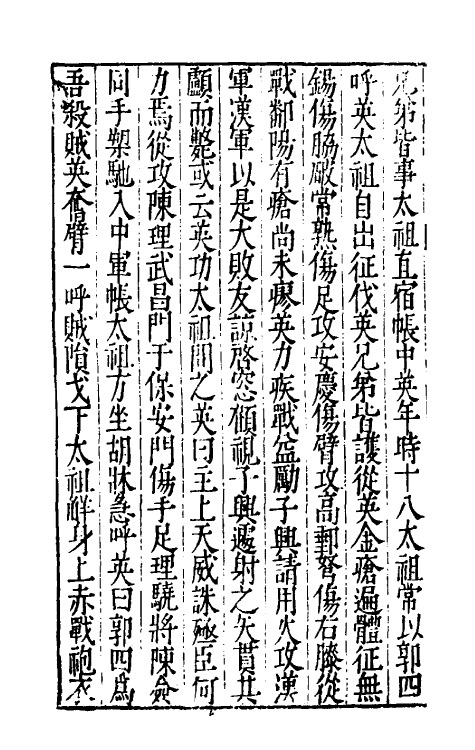 兄弟皆事太祖直宿帳中英年時十八太祖常以郭四
呼英太祖自出征伐英兄弟皆護從英金瘡遍體征無
錫傷脇殿常熟傷足攻安慶傷臂攻高郵弩傷右膝從
戰鄱陽有瘡尚未瘳英力疾戰益勵子興請用火攻漢
軍漢軍以是大敗友諒啓窓顧視子興遽射之矢貫其
顱而斃或云英功太祖問之英曰主上天威誅殛臣何
力焉從攻陳理武昌門于保安門傷手足理驍將陳僉
同手槊馳入中軍帳太祖方坐胡牀急呼英曰郭四為
吾殺賊英奮臂一呼賊隕戈下太祖解身上赤戰袍衣